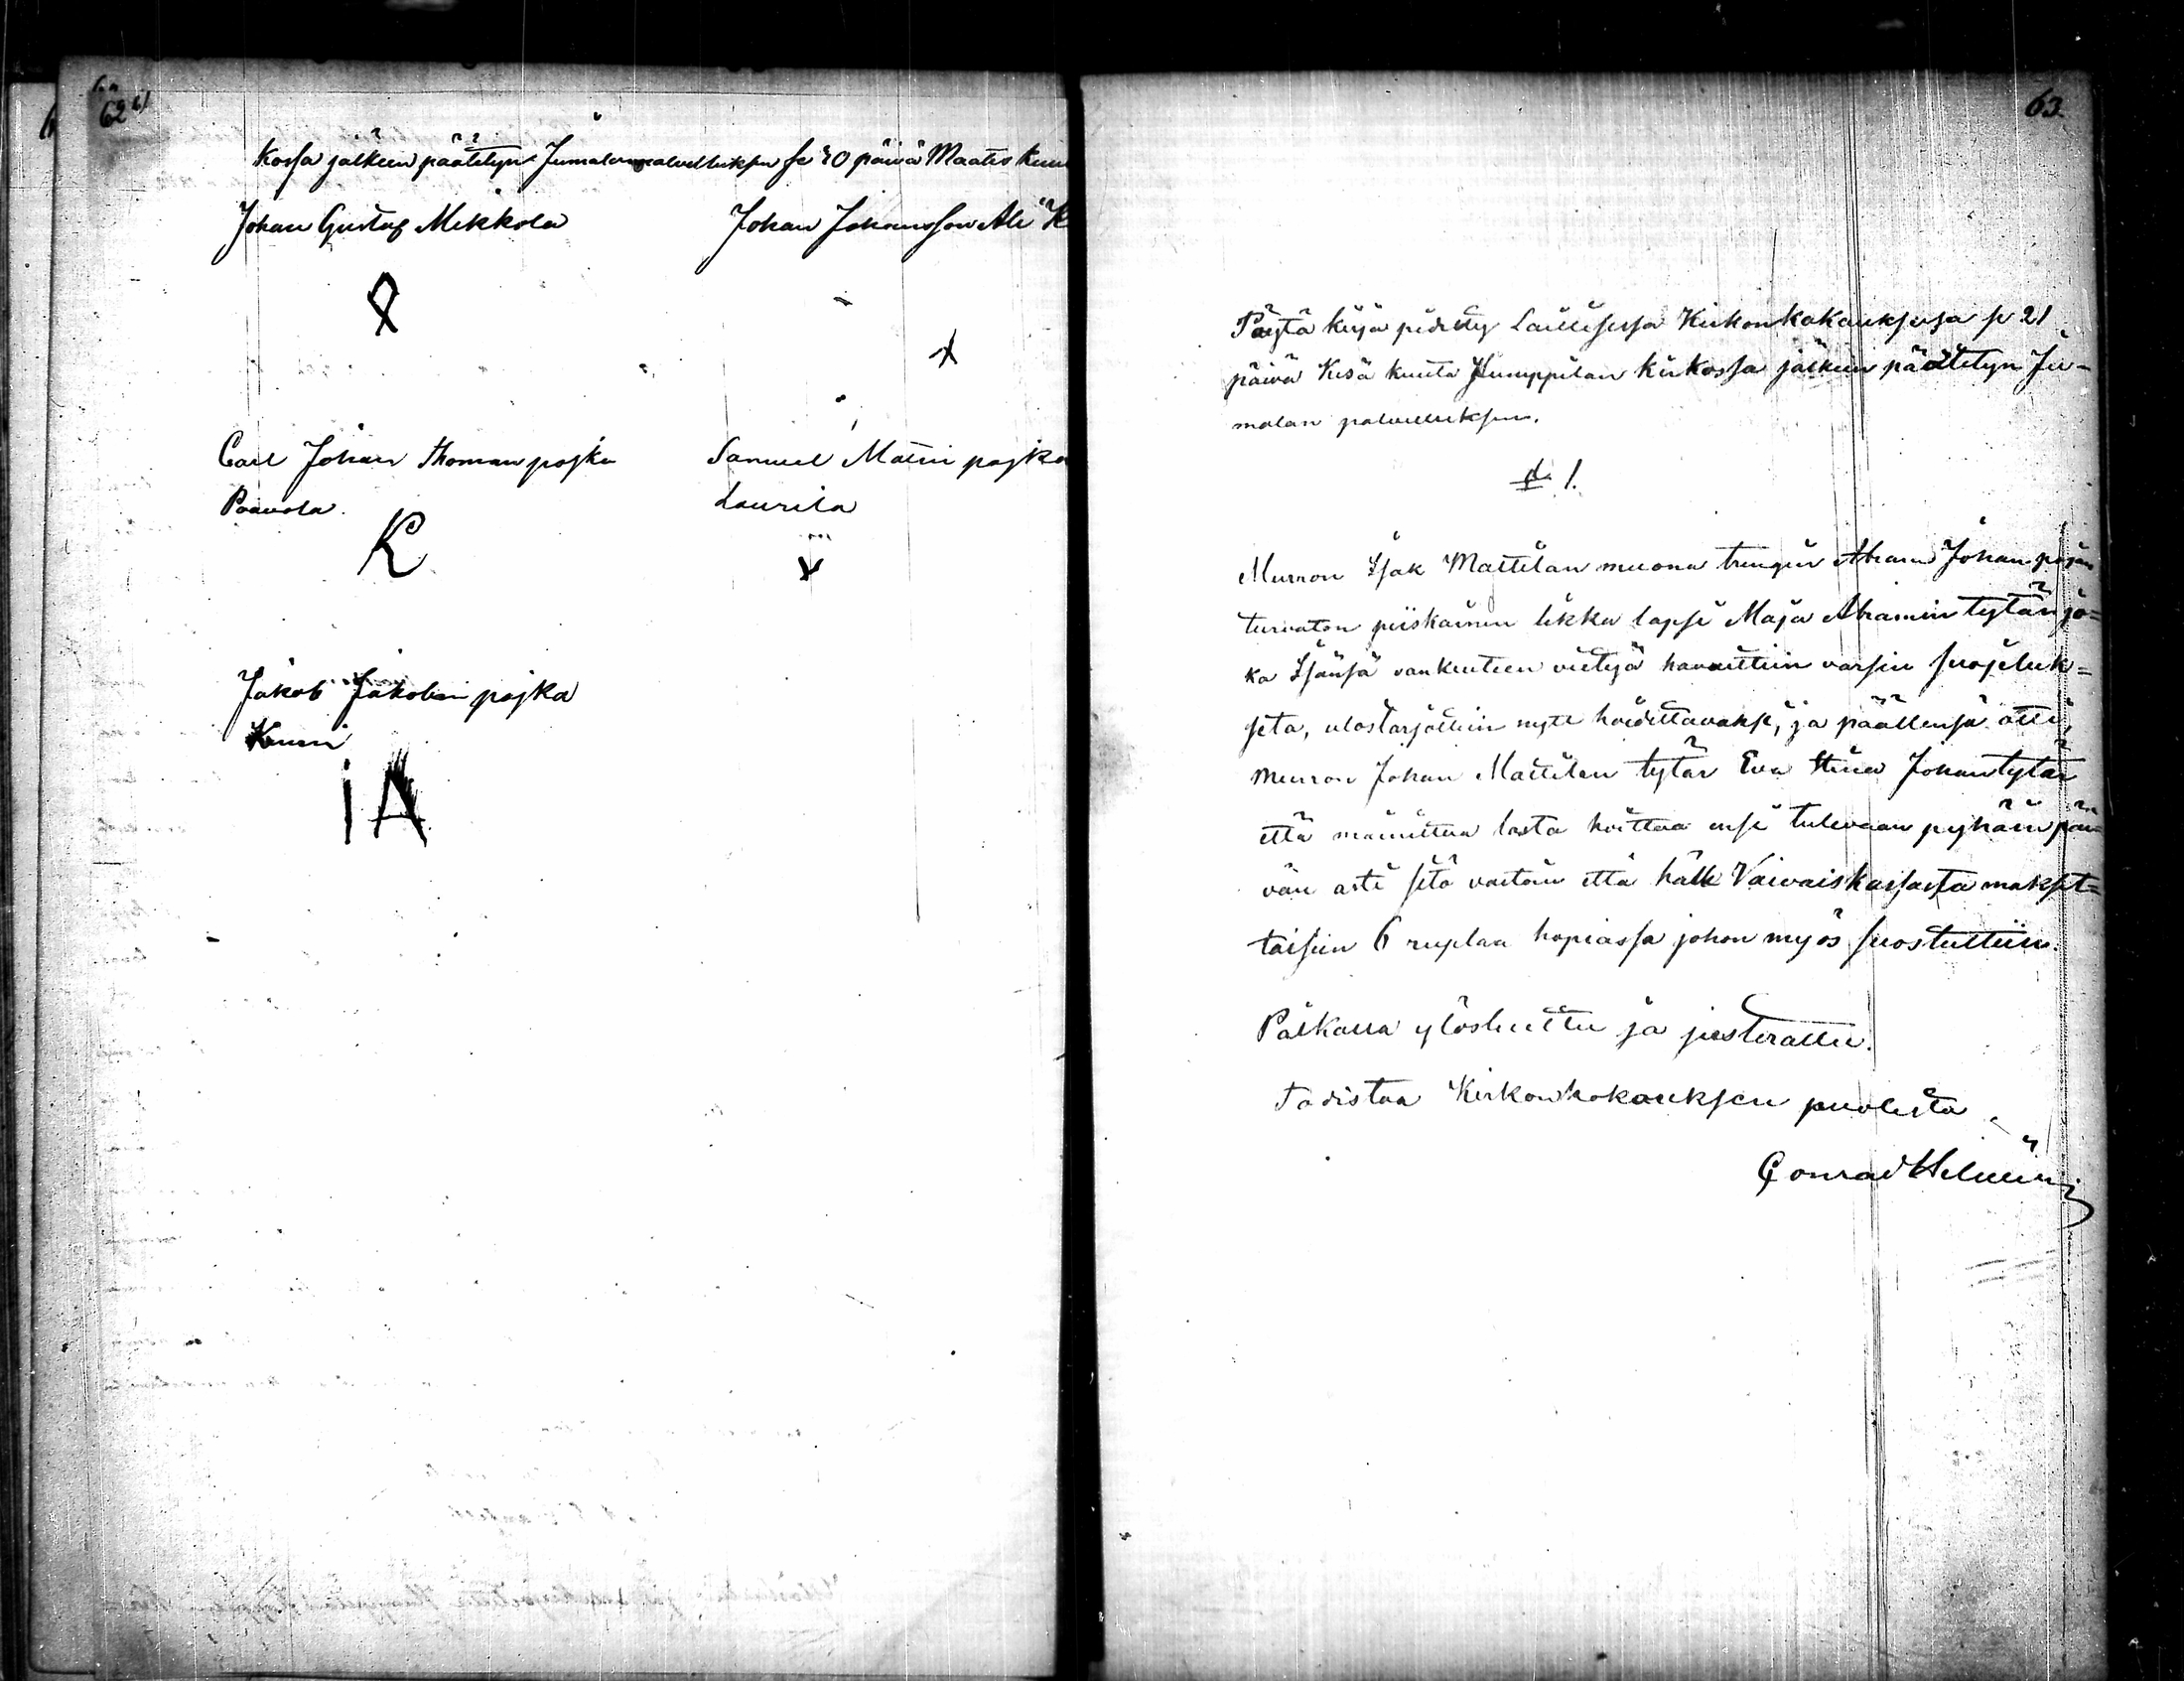 62
kossa jälkeen päätetyn Jumalanpalvelluksen se 30 päivä Maalis kuu
Johan Gustaf Mikkola
Johan Johansson Ali K
Carl Johan Thoman pojka
Paavola
Samuel Matin pojka
Laurila
K
Jakob Jakobin pojka
IA
63.
Pöytä kirja pidetty Laillisessa Kirkonkokouksessa se 21
päivä Kesä kuuta Humppilan kirkossa jälkeen päätetyn Ju-
malan palvelluksen.
§. 1.
Murron Isak Mattilan muona trengin Abram Johan pojan
turvaton piiskainen likka lapse Maja Abramin tytär jo-
ka Isänsä vankeuteen vietyä havaittiin varsin suojeluk-
seta, ulostarjottiin nytt hoidettavaks, ja päällensä otti,
Murron Johan Mattilan tytär Eva Stina Johantytär
että mainittua lasta hoittaa ensi tulevaan pyhäin päi-
vän asti sitä vastoin että hälle Vaivaiskassasta makset-
taisiin 6 ruplaa hopiassa johon myös suostuttiin.
Paikalla ylösluettu ja justerattu.
Todistaa Kirkonkokouksen puolesta
Conrad Helmini